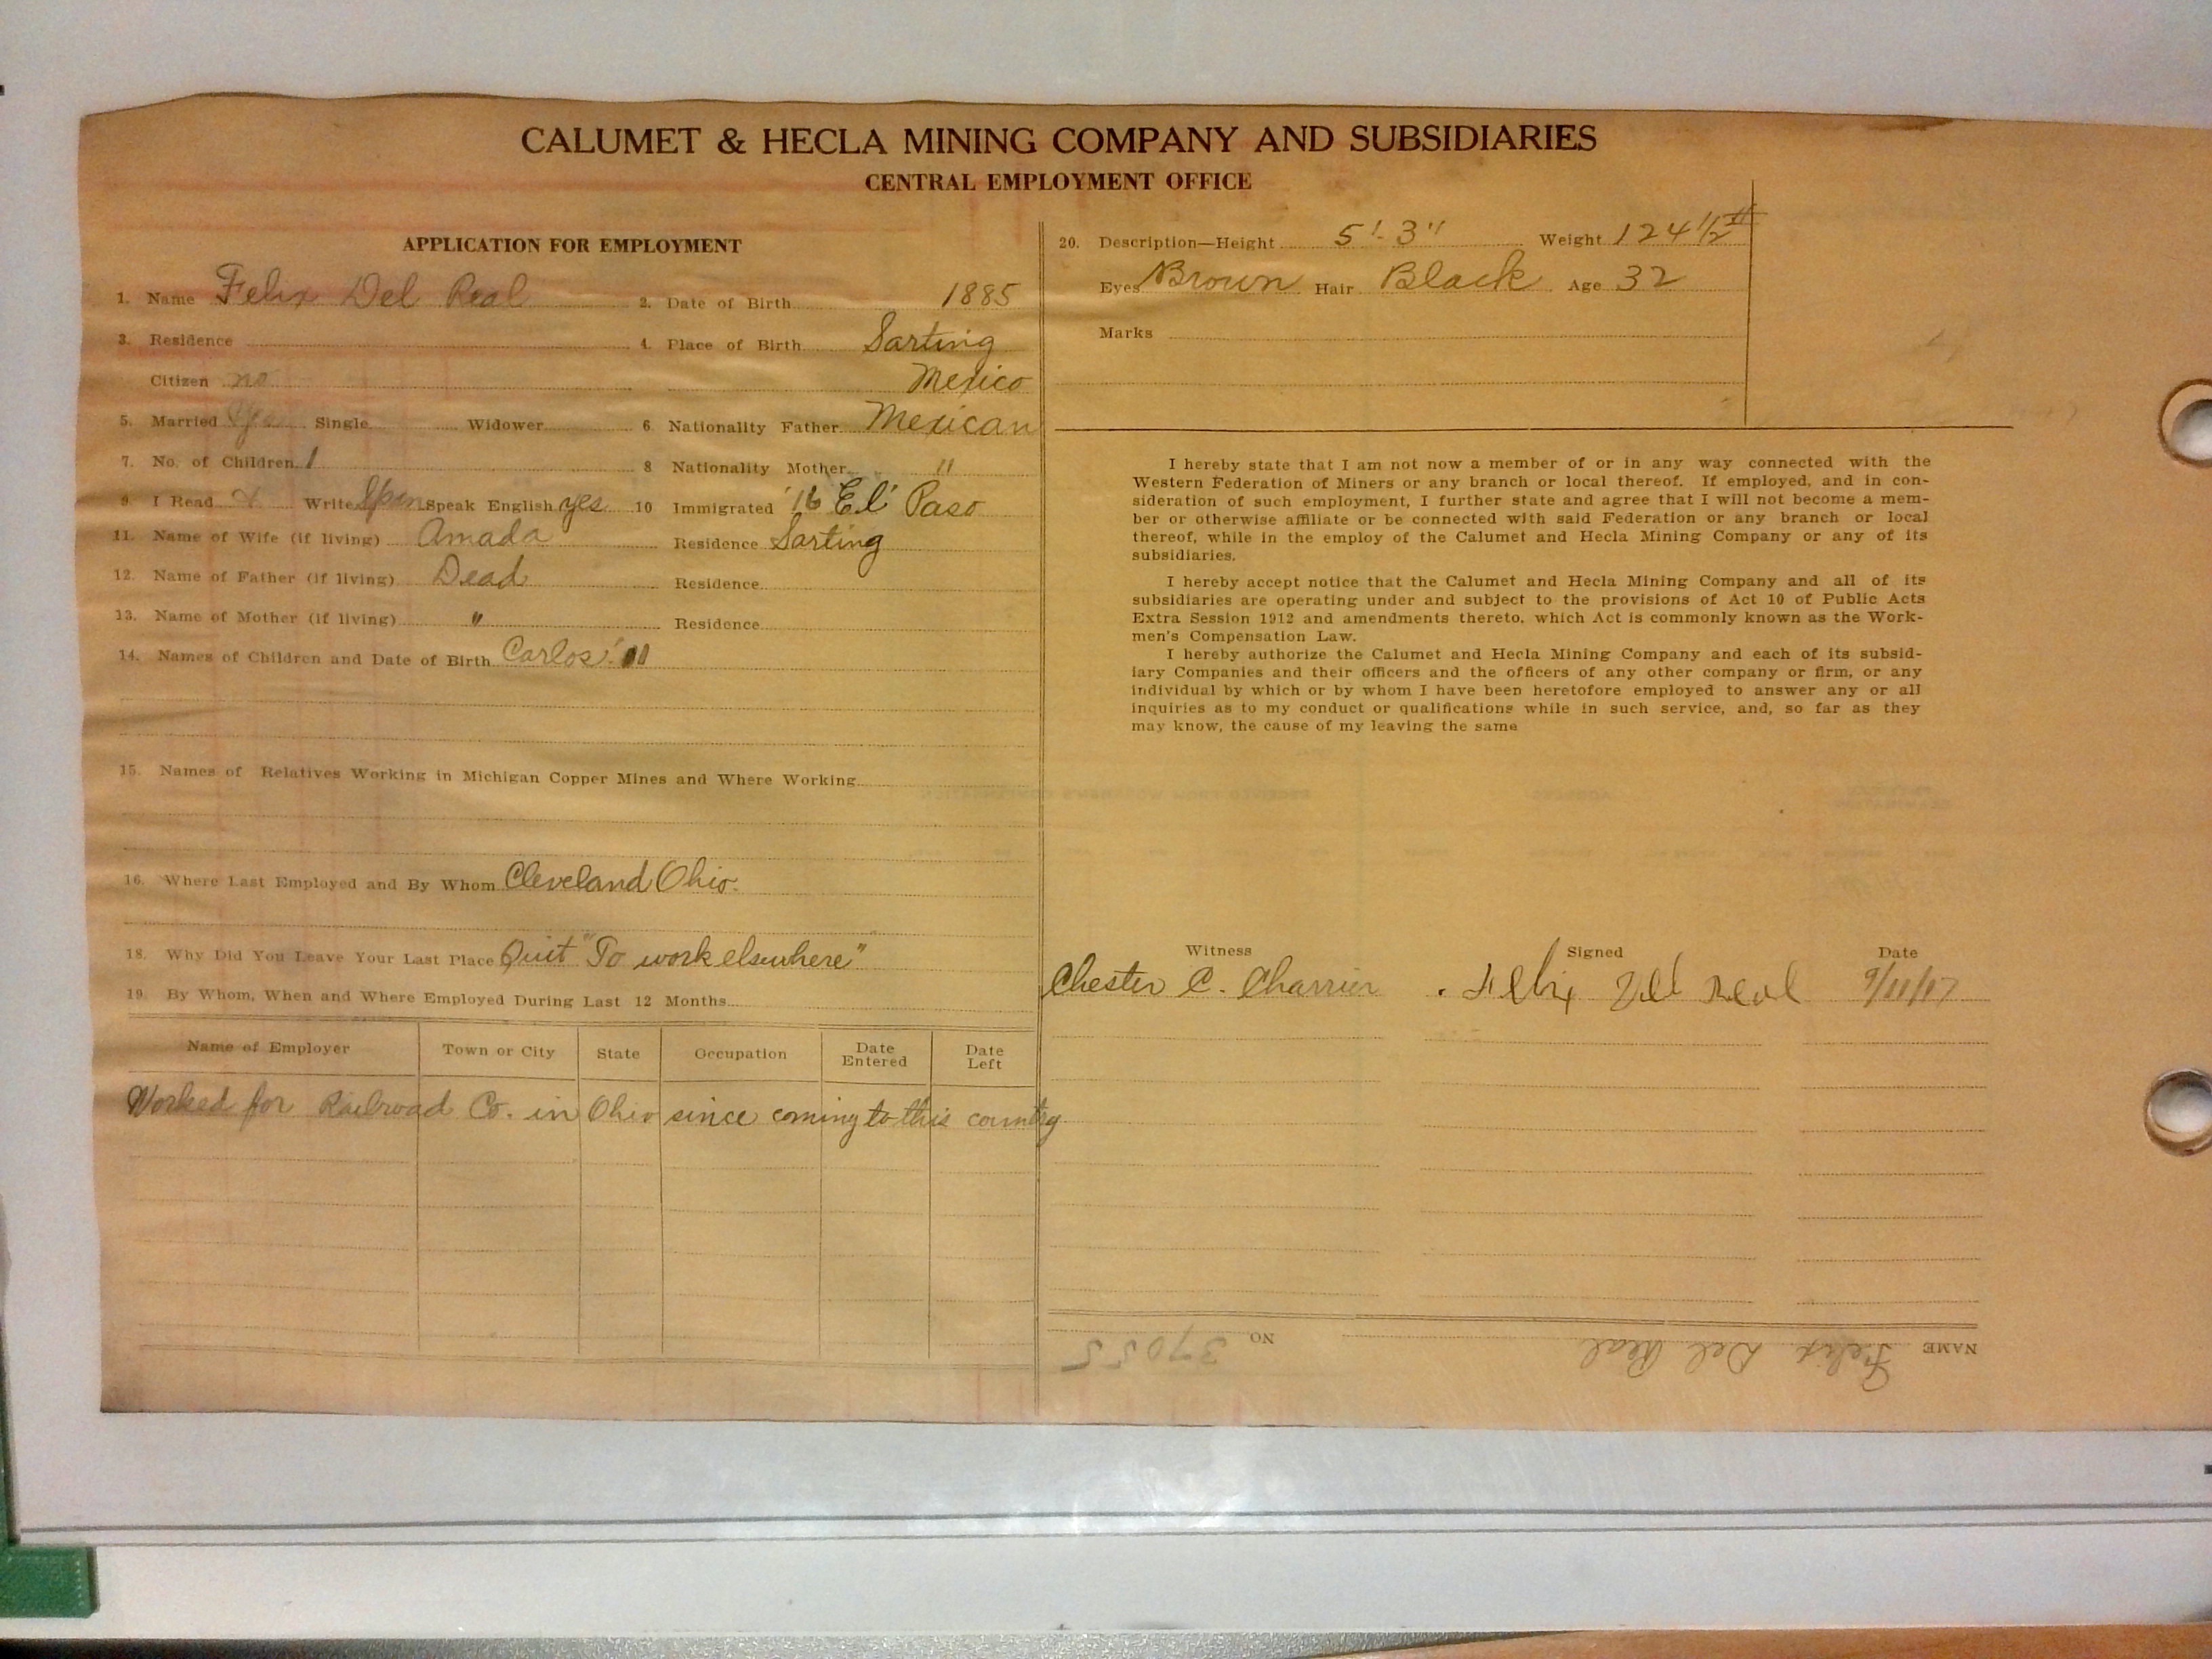 CALUMET & HECLA MINING COMPANY AND SUBSIDIARIES
CENTRAL EMPLOYMENT OFFICE
APPLICATION FOR EMPLOYMENT
1. Name Felix Del Real 2. Date of Birth 1885
3. Residence 4. Place of Birth Sarting
Citizen no Mexico
5. Married Yes Single Widower 6. Nationality Father Mexican
7. No. of Children 1 8 Nationality Mother "
9. I Read & Write Span Speak English yes 10 Immigrated '16 El Paso
11. Name of Wife (if living) Amada Residence Sarting
12. Name of Father (if living) Dead Residence
13. Name of Mother (if living) " Residence
14. Names of Children and Date of Birth Carlos '11
15. Names of Relatives Working in Michigan Copper Mines and Where Working
16. Where Last Employed and By Whom Cleveland Ohio.
18. Why Did You Leave Your Last Place Quit "To work elsewhere"
19. By Whom, When and Where Employed During Last 12 Months
Name of Employer Town or City State Occupation Date Entered Date Left
Worked for Railroad Co. in Ohio since coming to this country
20. Description—Height 5'-3" Weight 124 1/2 #
Eyes Brown Hair Black Age 32
Marks
I hereby state that I am not now a member of or in any way connected with the
Western Federation of Miners or any branch or local thereof. If employed, and in con-
sideration of such employment, I further state and agree that I will not become a mem-
ber or otherwise affiliate or be connected with said Federation or any branch or local
thereof, while in the employ of the Calumet and Hecla Mining Company or any of its
subsidiaries.
I hereby accept notice that the Calumet and Hecla Mining Company and all of its
subsidiaries are operating under and subject to the provisions of Act 10 of Public Acts
Extra Session 1912 and amendments thereto, which Act is commonly known as the Work-
men's Compensation Law.
I hereby authorize the Calumet and Hecla Mining Company and each of its subsid-
iary Companies and their officers and the officers of any other company or firm, or any
individual by which or by whom I have been heretofore employed to answer any or all
inquiries as to my conduct or qualifications while in such service, and, so far as they
may know, the cause of my leaving the same
Witness Signed Date
Chester C. Charrier Felix Del Real 9/11/17
NAME Felix Del Real NO 37055